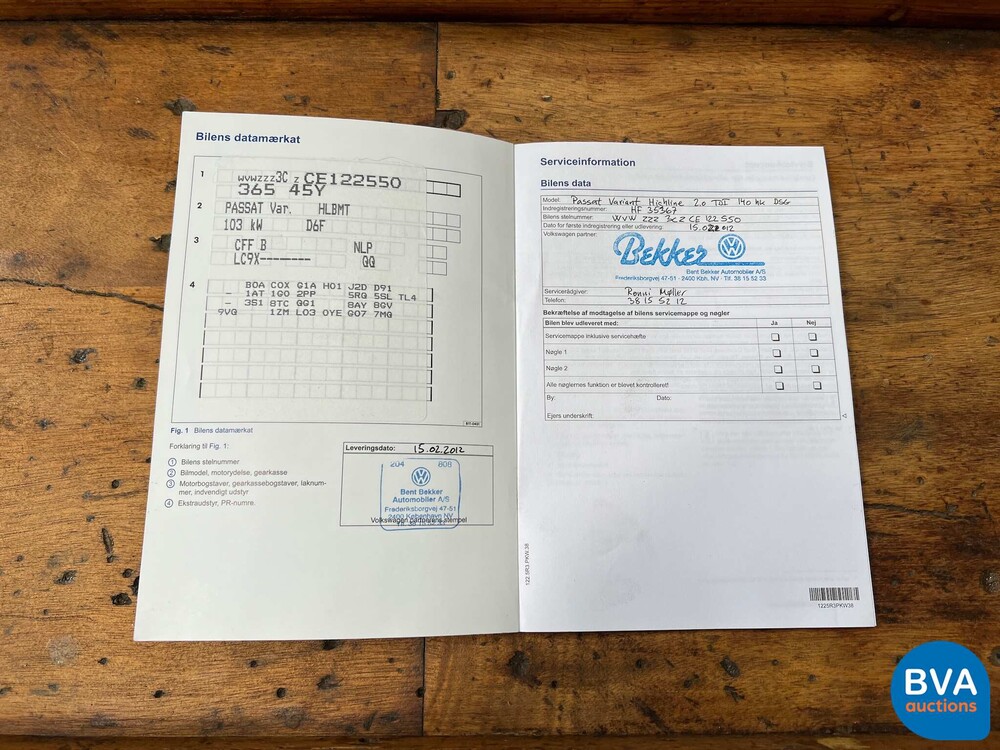 Bilens datamærkat
1
WVWZZZ3C Z CE122550
365 45Y
2
PASSAT Var. HLBMT
103 kW D6F
3
CFF B NLP
LC9X-------- QQ
4
BOA COX G1A H01 J2D D91
- 1AT 1G0 2PP 5RQ 5SL TL4
- 3S1 8TC QG1 8AY 8GV
9VQ 1ZM L03 OYE Q07 7MG
Fig. 1 Bilens datamærkat
Forklaring til Fig. 1:
1 Bilens stelnummer
2 Bilmodel, motorydelse, gearkasse
3 Motorbogstaver, gearkassebogstaver, laknum-
mer, indvendigt udstyr
4 Ekstraudstyr, PR-numre.
Leveringsdato: 15.02.2012
204 808
Bent Bekker
Automobiler A/S
Frederiksborgvej 47-51
2400 København NV
Volkswagen partnerens stempel
Serviceinformation
Bilens data
Model: Passat Variant Highline 2.0 TDI 140 hk DSG
Indregistreringsnummer: HF 35367
Bilens stelnummer: WVW ZZZ 3CZ CE 122 550
Dato for første indregistrering eller udlevering: 15.02 2012
Volkswagen partner:
Bekker
Bent Bekker Automobiler A/S
Frederiksborgvej 47-51 - 2400 Kbh. NV - Tlf. 38 15 52 33
Servicerådgiver: Ronni Møller
Telefon: 38 15 52 12
Bekræftelse af modtagelse af bilens servicemappe og nøgler
Bilen blev udleveret med: Ja Nej
Servicemappe inklusive servicehæfte
Nøgle 1
Nøgle 2
Alle nøglernes funktion er blevet kontrolleret!
By: Dato:
Ejers underskrift:
122.5R3.PKW.38
1225R3PKW38
BVA
auctions